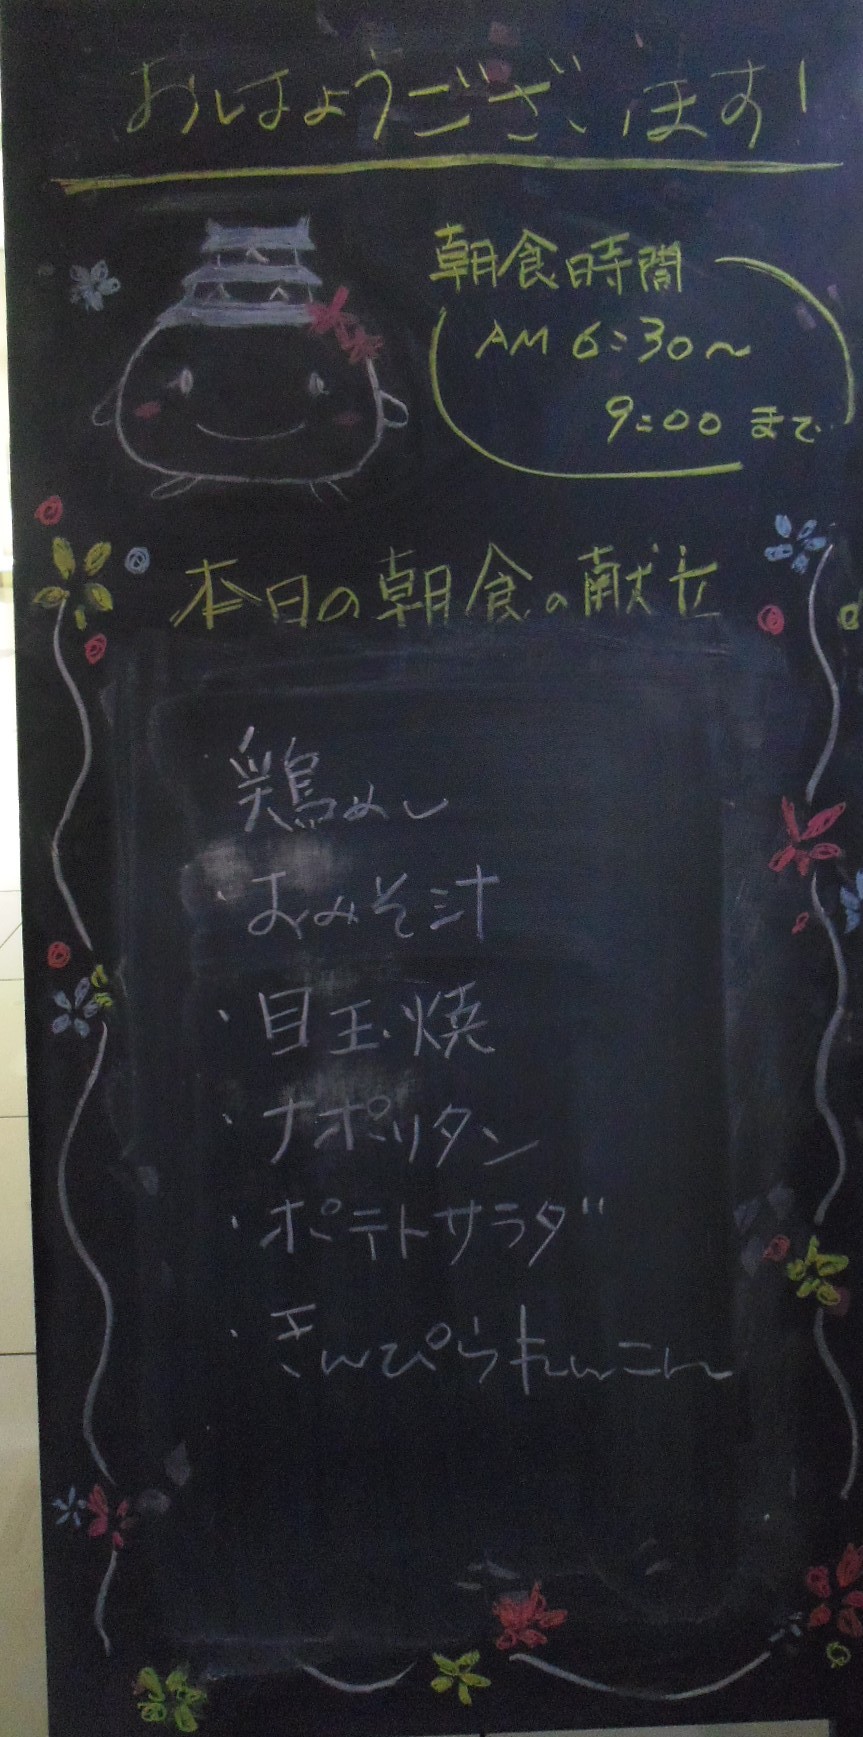 おはようございます!
朝食時間
AM 6:30～
9:00 まで
本日の朝食の献立
鶏めし
・おみそ汁
・目玉焼
・ナポリタン
・ポテトサラダ
・きんぴられんこん